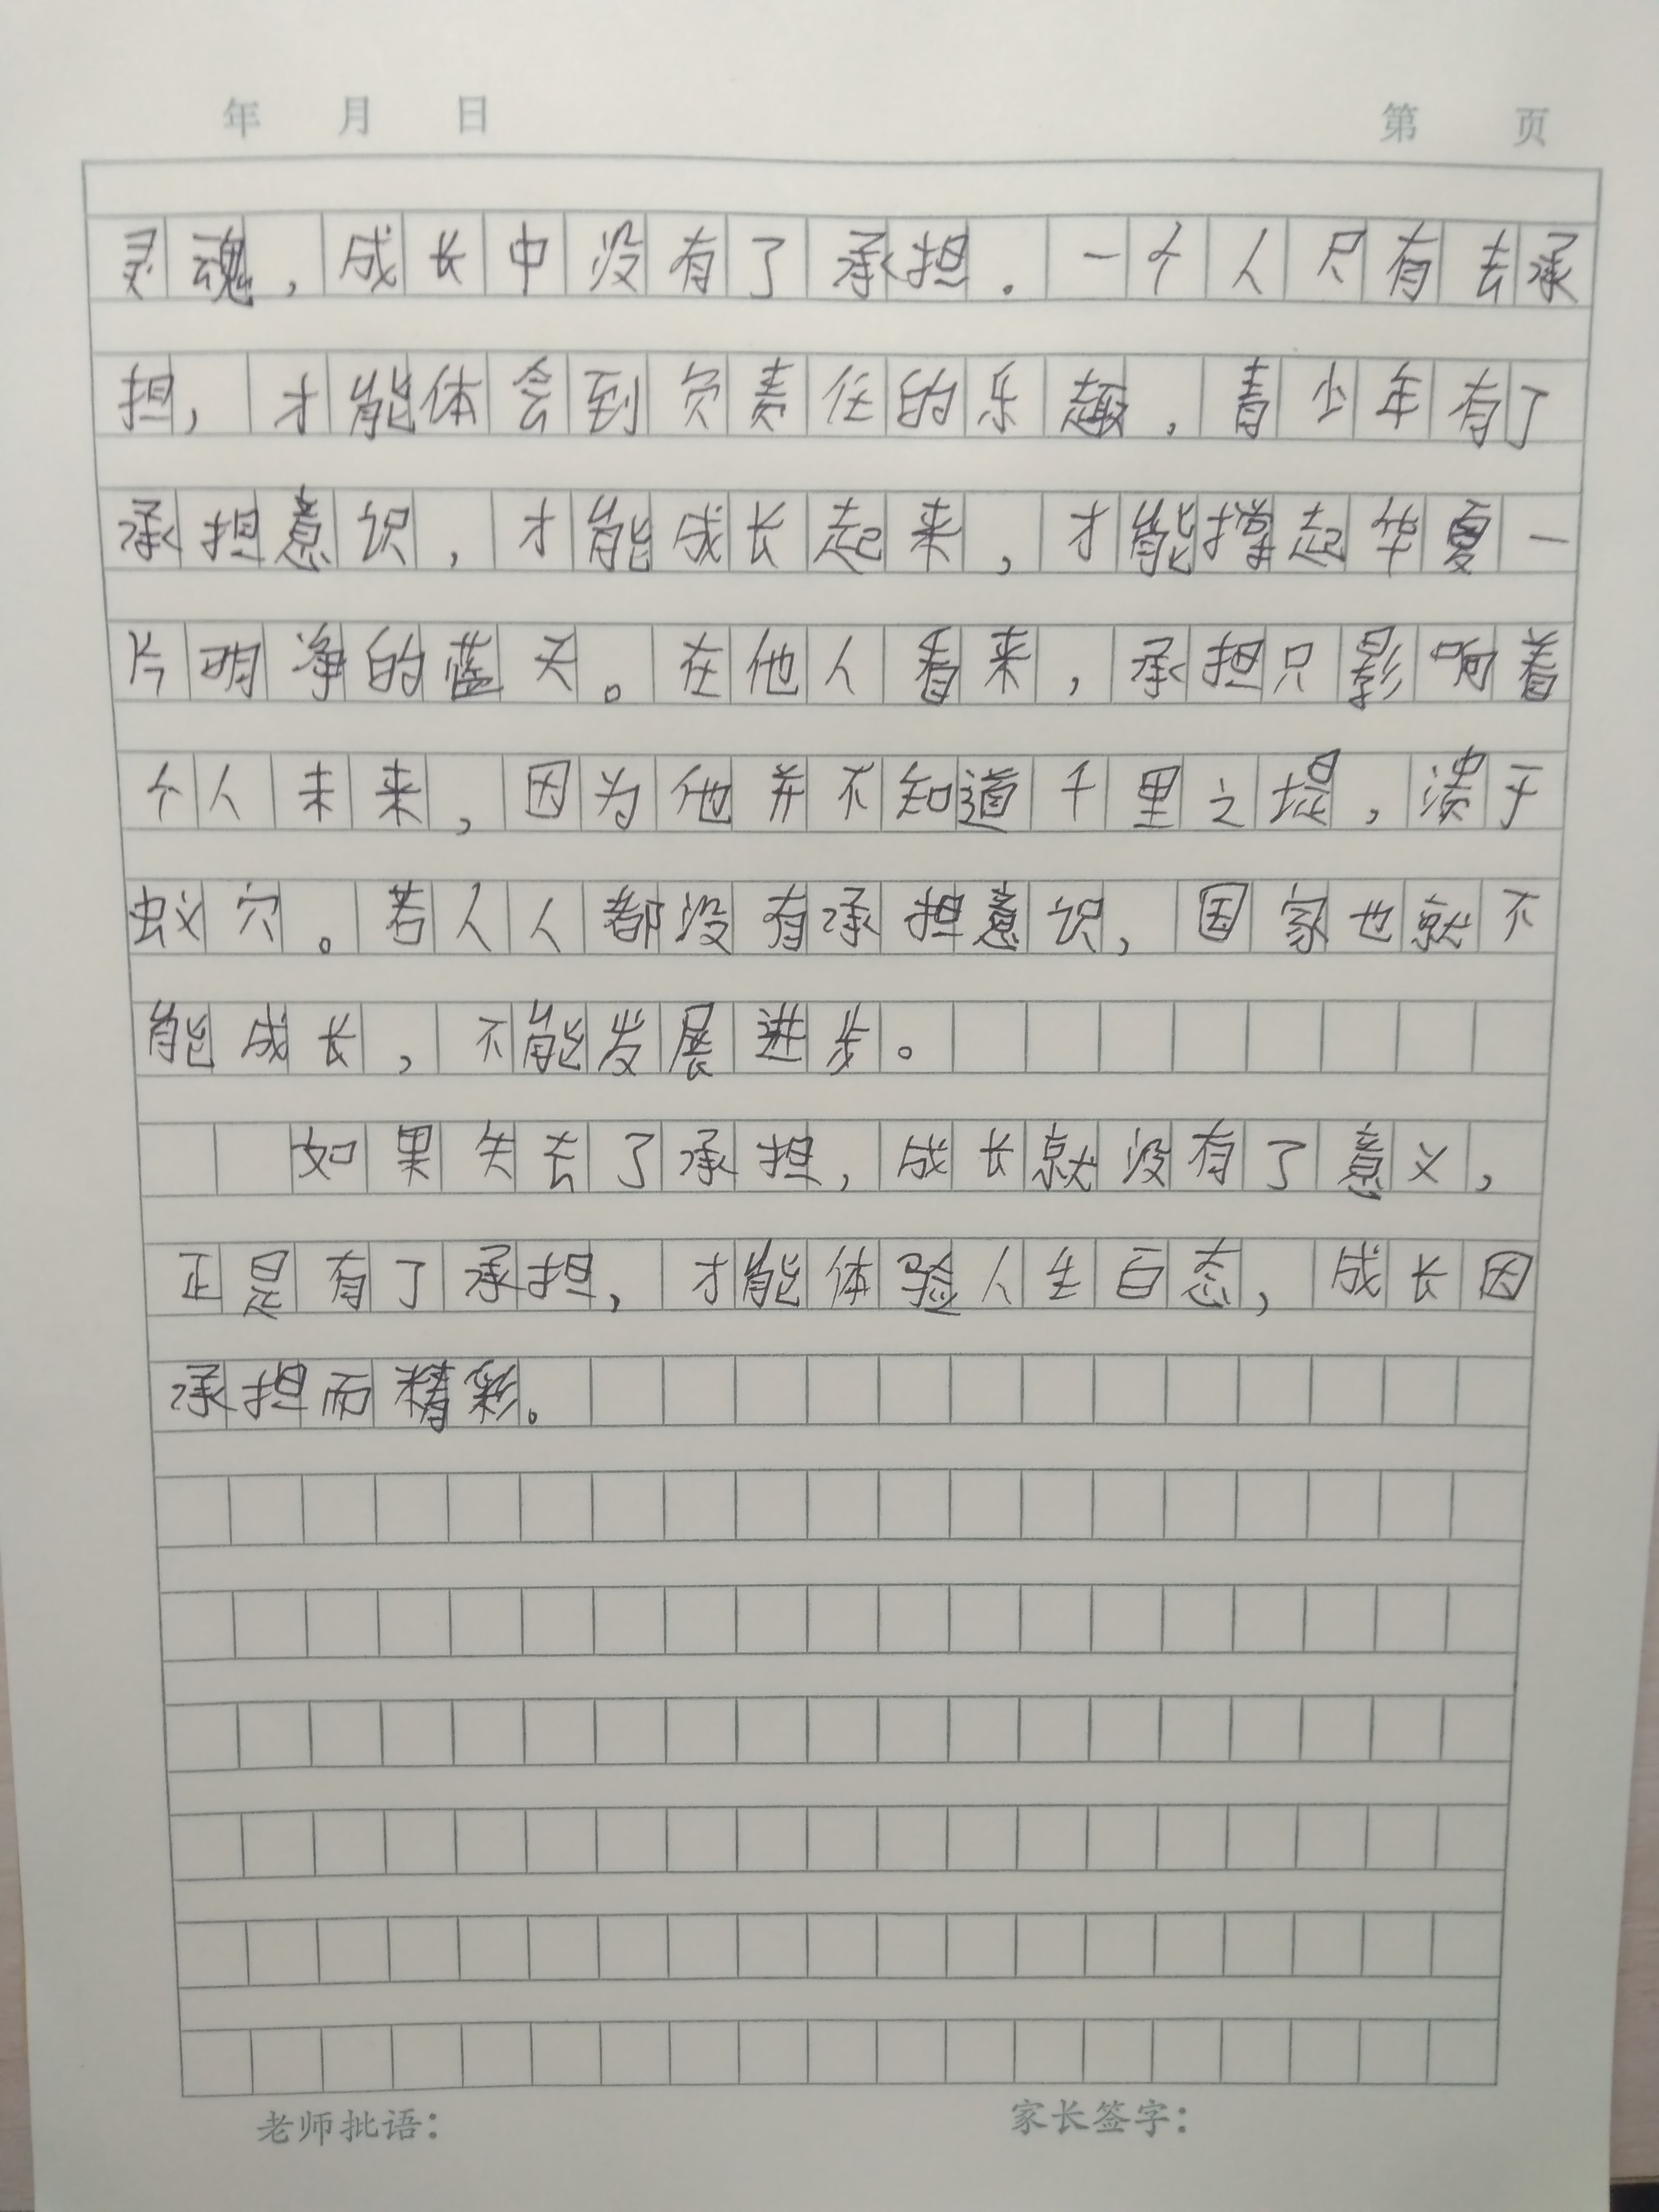 年 月 日 第 页
灵魂，成长中没有了承担。一个人只有去承
担，才能体会到负责任的乐趣，青少年有了
承担意识，才能成长起来，才能撑起华夏一
片明净的蓝天。在他人看来，承担只影响着
个人未来，因为他并不知道千里之堤，溃于
蚁穴。若人人都没有承担意识，国家也就不
能成长，不能发展进步。
如果失去了承担，成长就没有了意义，
正是有了承担，才能体验人生百态，成长因
承担而精彩。
老师批语： 家长签字：